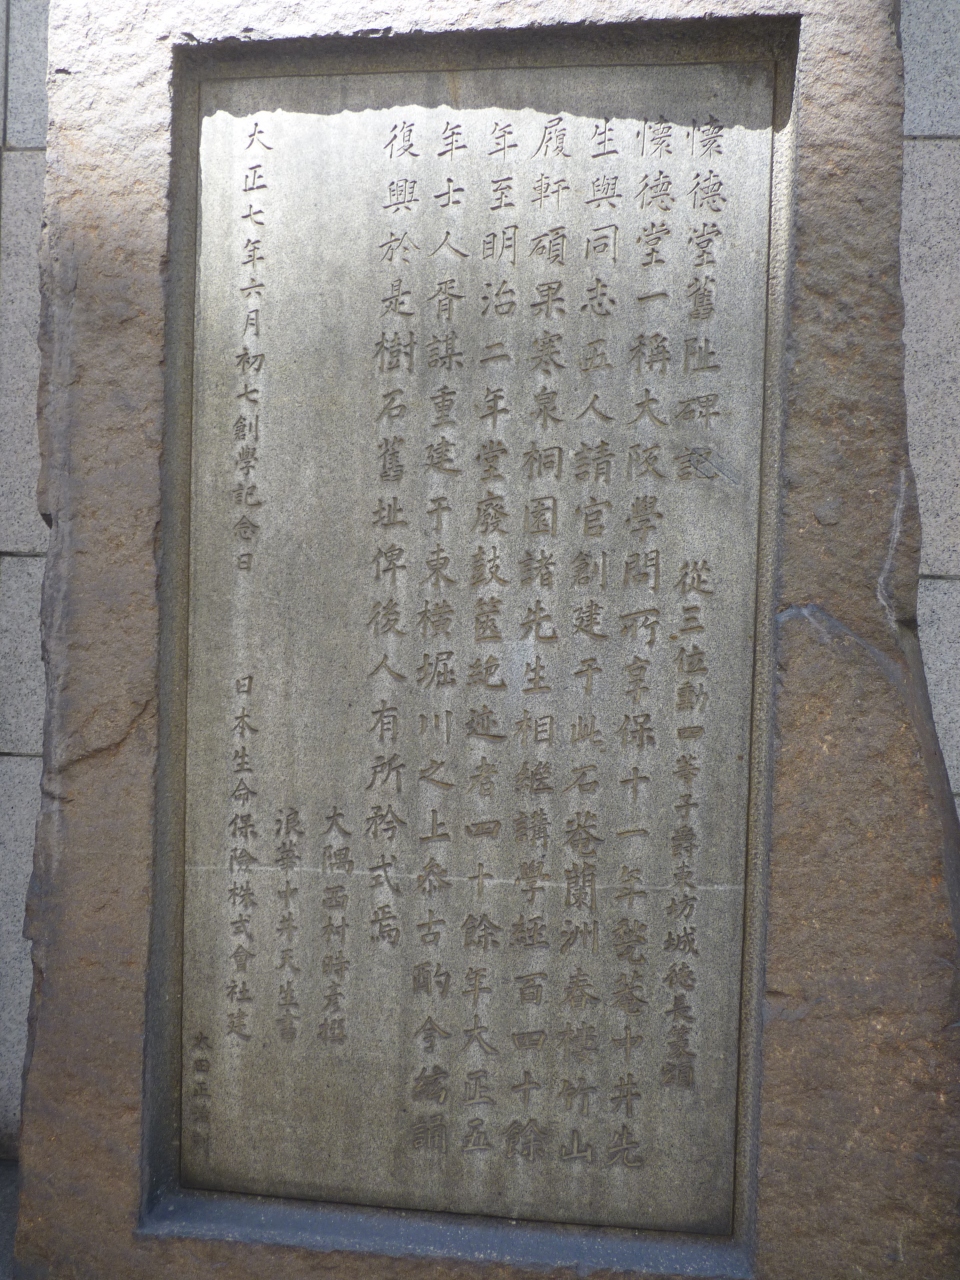 懷德堂舊阯碑記　從三位勳四等子爵東坊城德長篆額
懷德堂一稱大阪學問所享保十一年甃菴中井先
生與同志五人請官創建于此石菴蘭洲春樓竹山
履軒碩果寒泉桐園諸先生相繼講學經百四十餘
年至明治二年堂廢鼓篋絶迹者四十餘年大正五
年士人胥謀重建于東横堀川之上叅古酌今絃誦
復興於是樹石舊址俾後人有所矜式焉
大隅西村時彥撰
浪華中井天生書
大正七年六月初七創學記念日　日本生命保險株式會社建